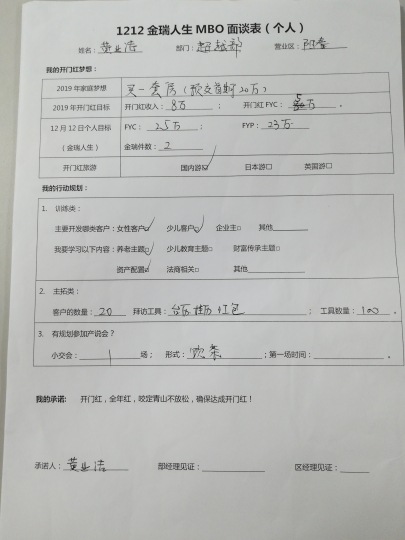 1212 金瑞人生 MBO 面谈表（个人）
姓名： 部门：超越部 营业区：阳春
我的开门红梦想：
2019 年家庭梦想 买一套房（预交首期20万）
2019 年开门红目标 开门红收入：8万 ； 开门红 FYC：5万 。
12 月 12 日个人目标（金瑞人生） FYC：2.5万 ； FYP：23万
金瑞件数：2
开门红旅游 国内游☑ 日本游□ 英国游□
我的行动规划：
1. 训练类：
主要开发哪类客户：女性客户☑ 少儿客户☑ 企业主□ 其他
我要学习以下内容：养老主题☑ 少儿教育主题□ 财富传承主题□
资产配置☑ 法商相关□ 其他
2. 主拓类：
客户的数量：20 拜访工具：台历 挂历 红包 ； 工具数量：100 。
3. 有规划参加产说会？
小交会： 1 场； 形式： ；第一场时间： 。
我的承诺： 开门红，全年红，咬定青山不放松，确保达成开门红！
承诺人： 部经理见证： 区经理见证：